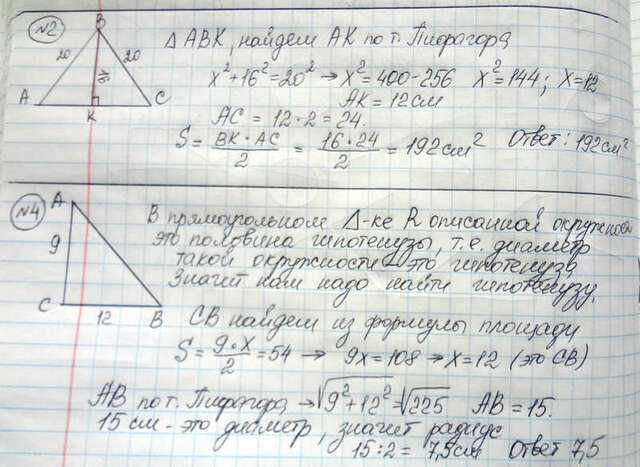 №2
B
20
20
16
A
K
C
Δ ABK, найдем AK по т. Пифагора
x²+16²=20² → x²=400-256 x²=144; x=12
AK = 12 см
AC = 12·2 = 24.
S = BK·AC/2 = 16·24/2 = 192 см² Ответ: 192 см²
№4
A
9
C
12
B
В прямоугольном Δ-ке R описанной окружности
это половина гипотенузы, т.е. диаметр
такой окружности - это гипотенуза
Значит нам надо найти гипотенузу.
CB найдем из формулы площади
S = 9·x/2 = 54 → 9x = 108 → x = 12 (это CB)
AB по т. Пифагора → √9²+12² = √225 AB = 15.
15 см - это диаметр, значит радиус
15:2 = 7,5 см Ответ 7,5